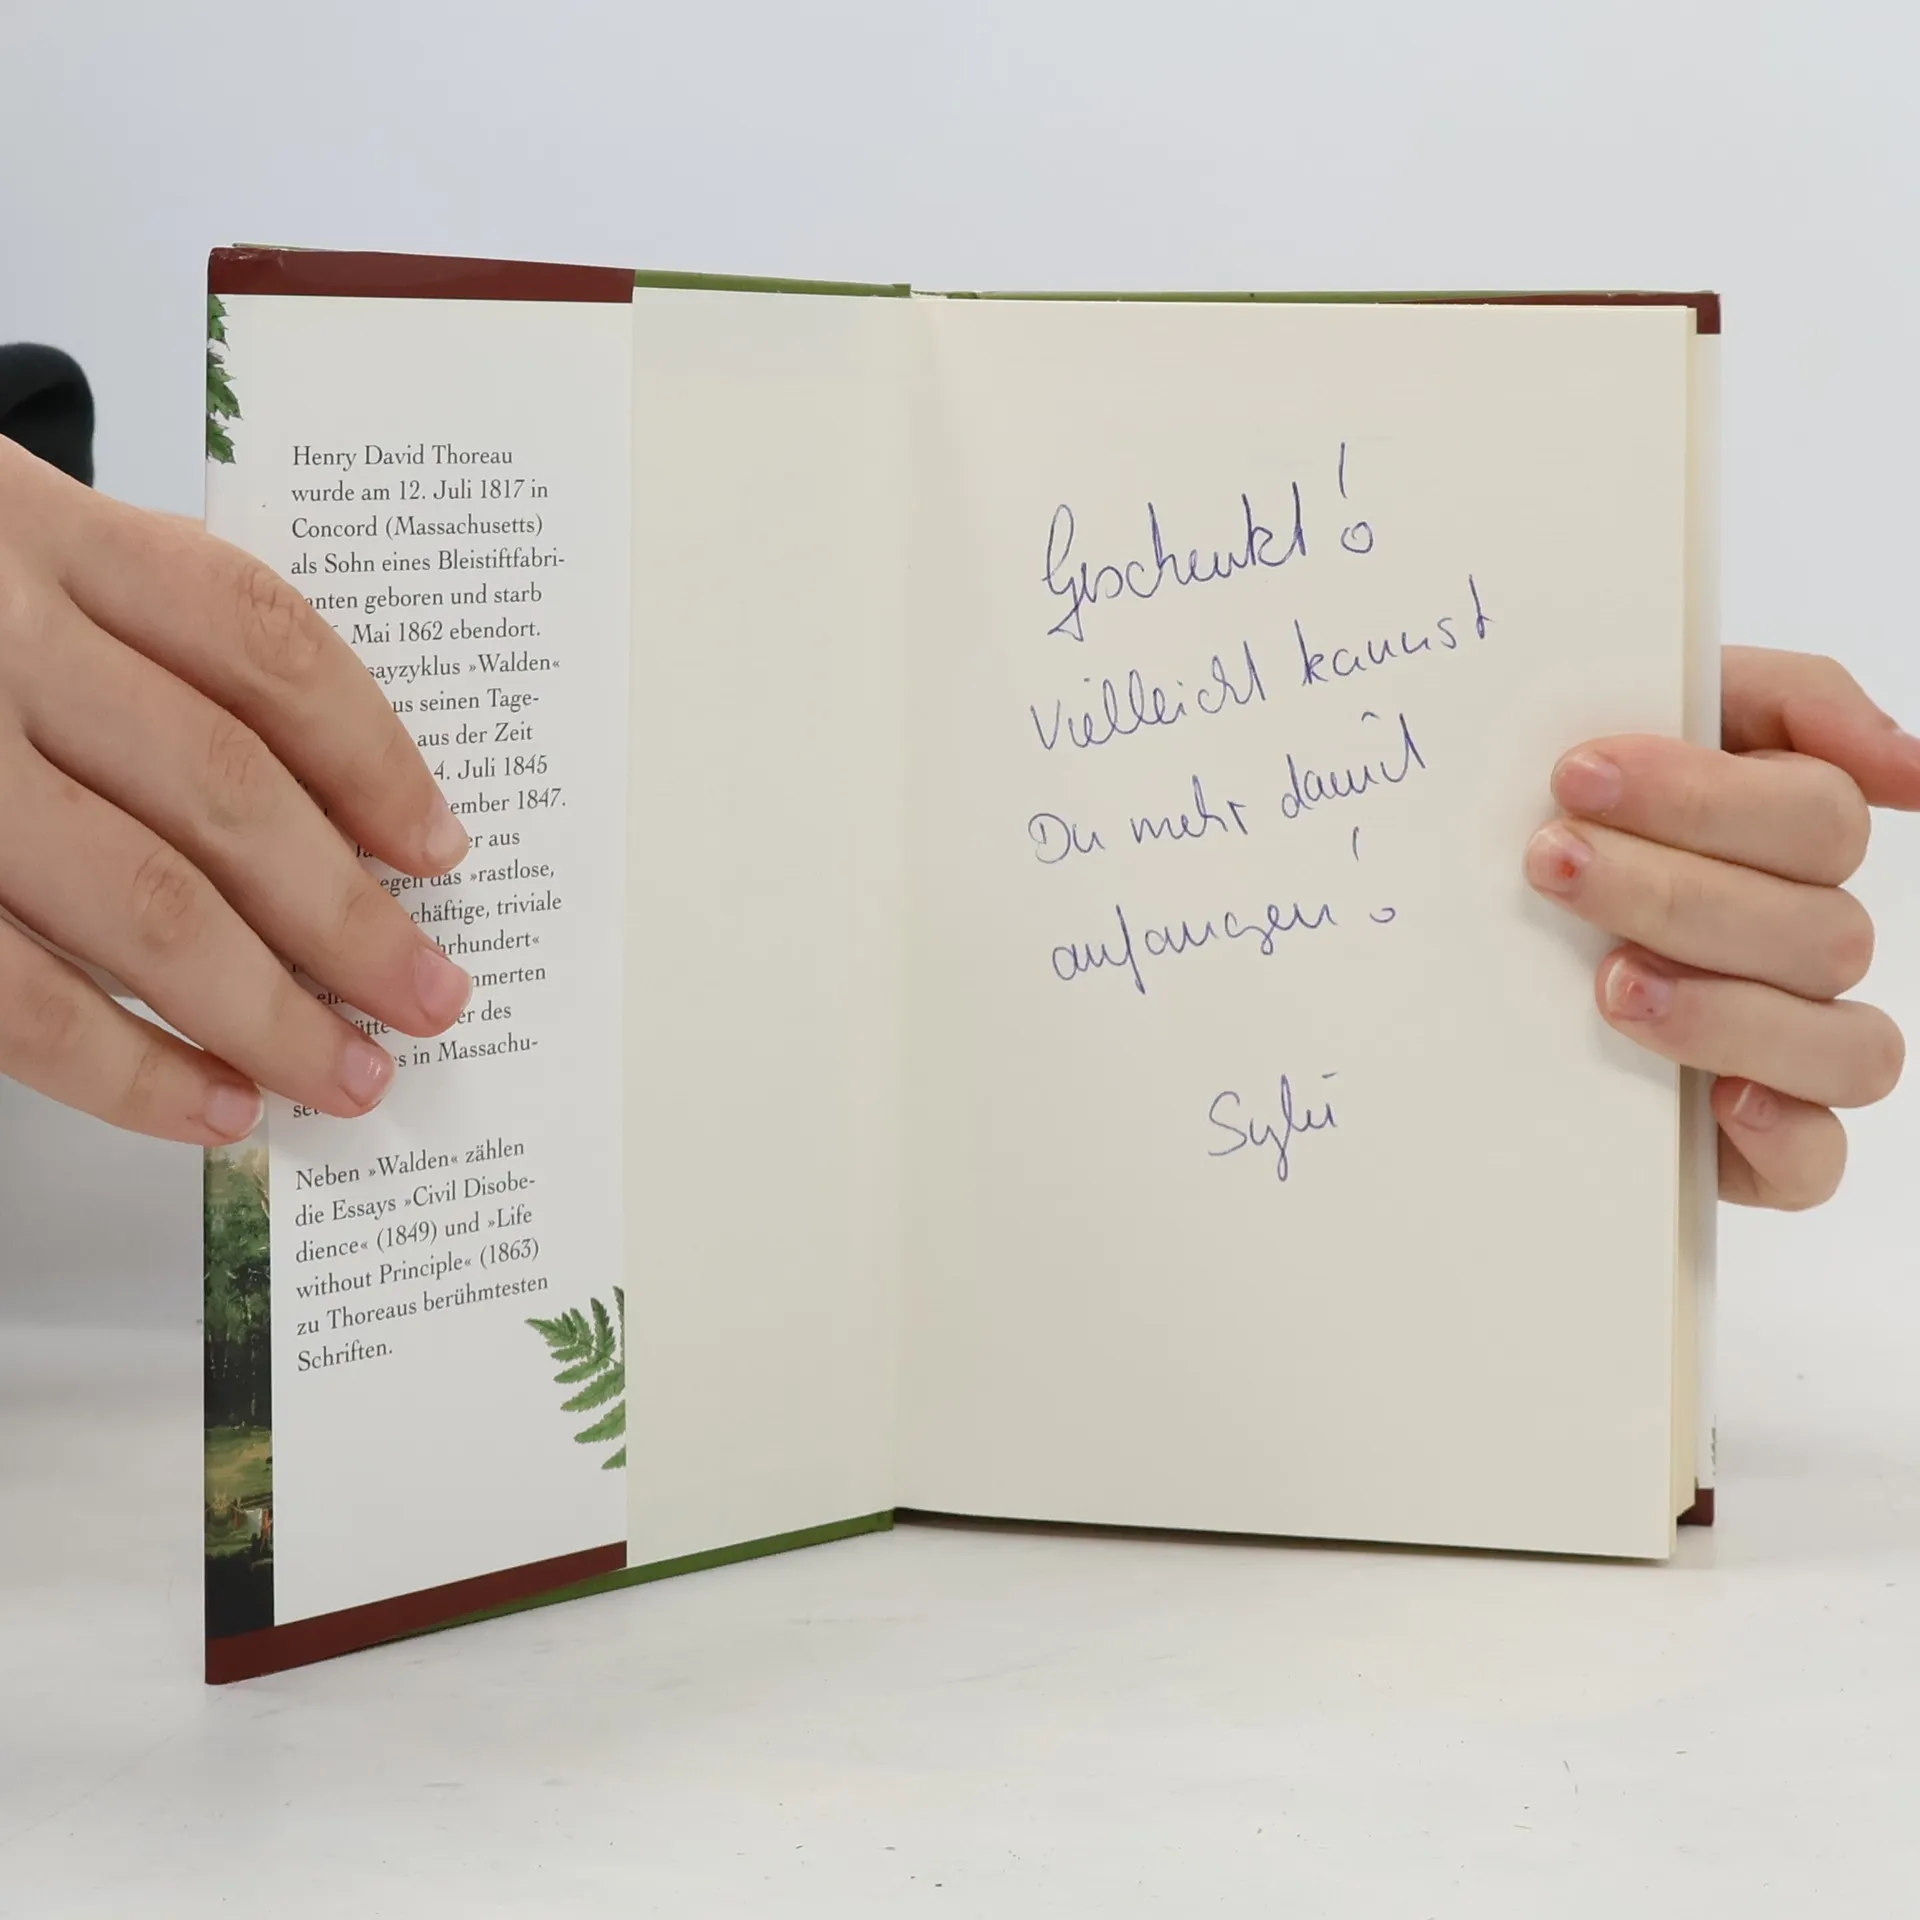 Henry David Thoreau
wurde am 12. Juli 1817 in
Concord (Massachusetts)
als Sohn eines Bleistiftfabri-
anten geboren und starb
Mai 1862 ebendort.
sayzyklus »Walden«
us seinen Tage-
aus der Zeit
4. Juli 1845
ember 1847.
er aus
egen das »rastlose,
chäftige, triviale
hrhundert«
nmerten
er des
s in Massachu-
Neben »Walden« zählen
die Essays »Civil Disobe-
dience« (1849) und »Life
without Principle« (1863)
zu Thoreaus berühmtesten
Schriften.
Geschenkt!
Vielleicht kannst
Du mehr damit
anfangen!